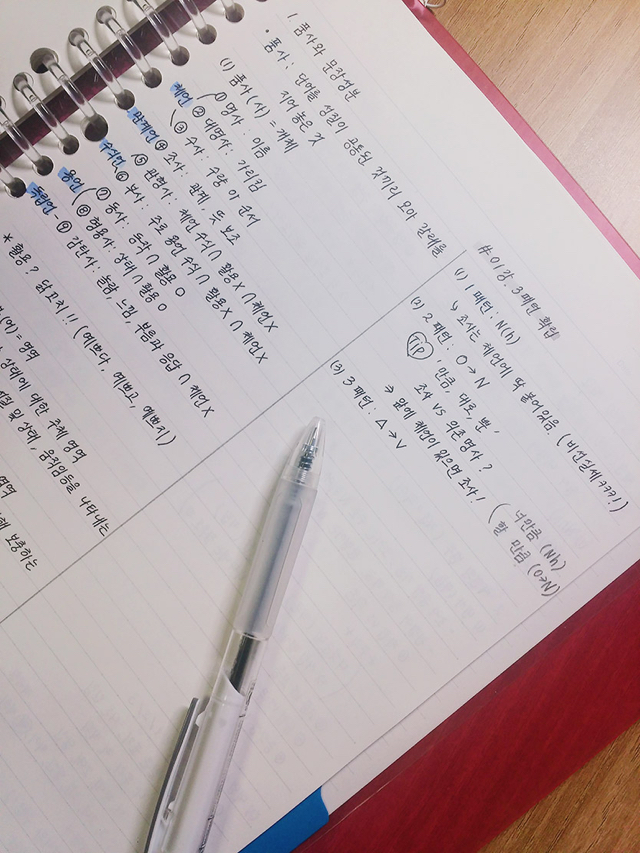 1. 품사와 문장성분
• 품사 : 단어를 성질이 공통된 것끼리 모아 갈래를
지어 놓은 것
(1) 품사(사) = 개체
체언 ① 명사 : 이름
② 대명사 : 가리킴
③ 수사 : 수량 or 순서
관계언 ④ 조사 : 관계, 뜻 보조
수식언 ⑤ 관형사 : 체언 수식 ∩ 활용X ∩ 체언X
⑥ 부사 : 주로 용언 수식 ∩ 활용X ∩ 체언X
용언 ⑦ 동사 : 동작 ∩ 활용 O
⑧ 형용사 : 상태 ∩ 활용 O
독립언 - ⑨ 감탄사 : 놀람, 느낌, 부름과 응답 ∩ 체언X
* 활용? 닭꼬치!! (예쁘다, 예쁘고, 예쁘지)
(어) = 영역
상태에 대한 주체 영역
및 상태, 움직임등을 나타내는
영역
보충하는
# 01강. 3패턴 확립
(1) 1패턴 : N(h)
↳ 조사는 체언에 딱 붙어있음 (비선실세ㅋㅋㅋ!)
(2) 2패턴 : O→N
Tip 만큼, 대로, 뿐,
조사 vs 의존명사?
⇒ 앞에 체언이 있으면 조사!
(너만큼 (Nh)
할 만큼 (O→N))
(3) 3패턴 : A→V